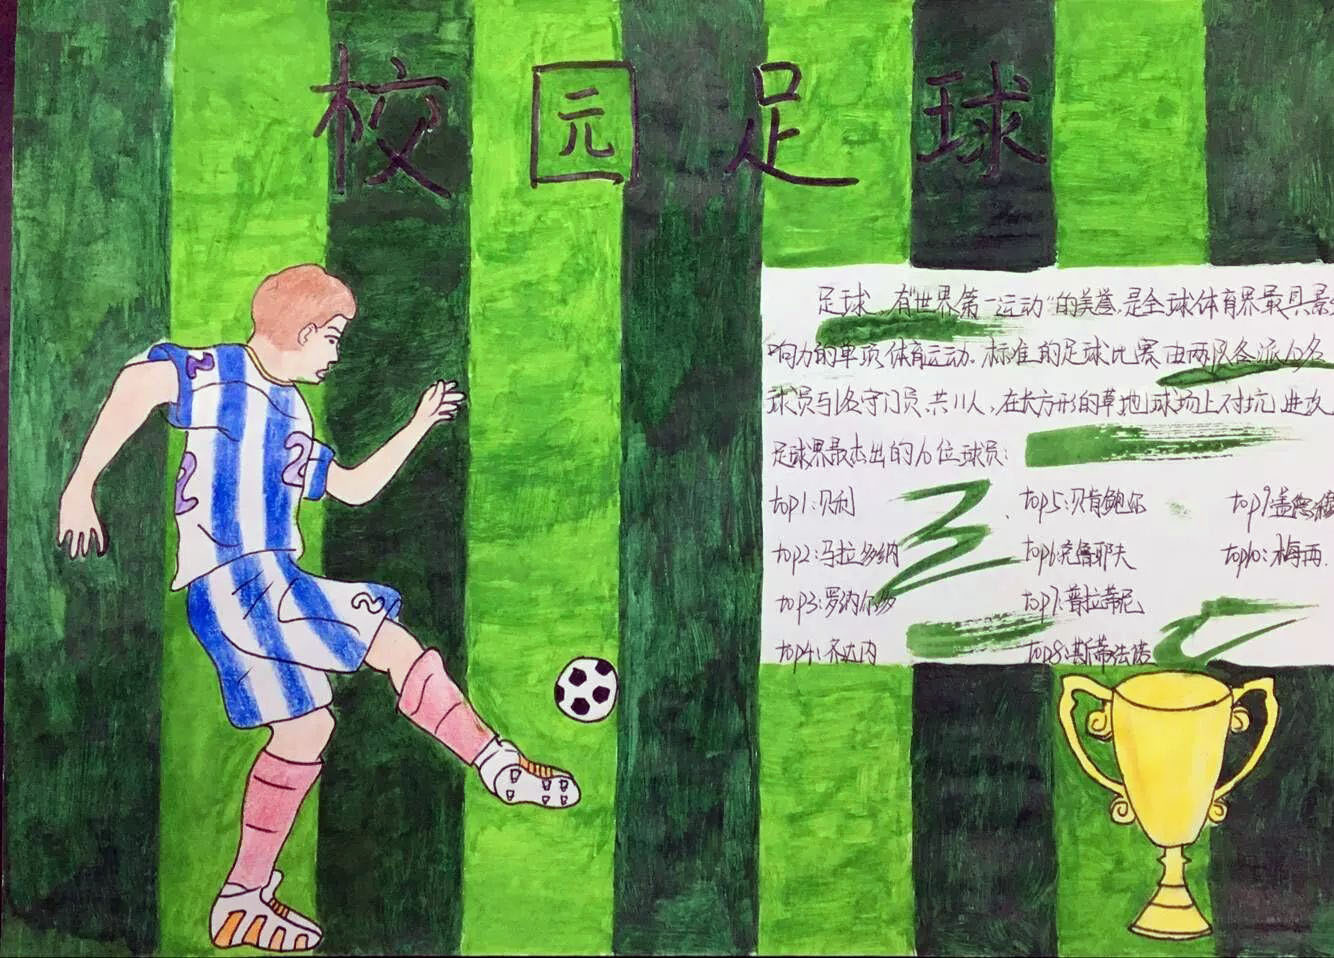 校园足球
足球，有“世界第一运动”的美誉，是全球体育界最具影
响力的单项体育运动．标准的足球比赛由两队各派10名
球员与1名守门员，共11人，在长方形的草地球场上对抗、进攻
足球界最杰出的10位球员：
top1：贝利 top5：贝肯鲍尔 top9：盖德穆
top2：马拉多纳 top6：克鲁耶夫 top10：梅西．
top3：罗纳尔多 top7：普拉蒂尼
top4：齐达内 top8：斯蒂法诺
2
2
2